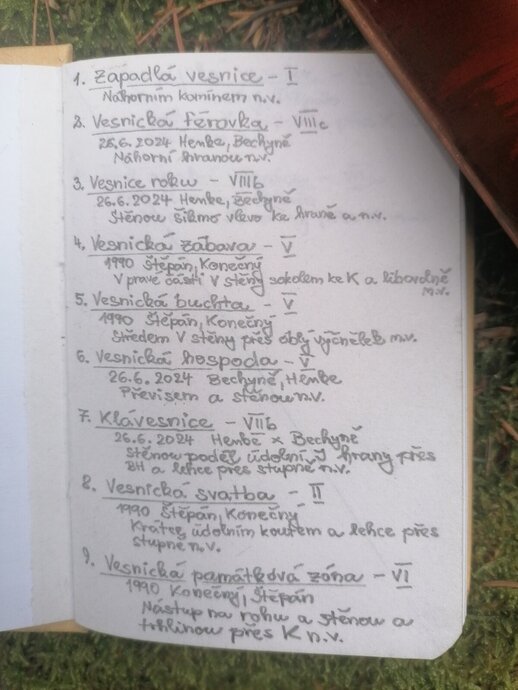 1. Zapadlá vesnice - I
Náhorním komínem n.v.
2. Vesnická férovka - VIIIc
26.6.2024 Henke, Bechyně
Náhorní hranou n.v.
3. Vesnice roku - VIIIb
26.6.2024 Henke, Bechyně
Stěnou šikmo vlevo ke hraně a n.v.
4. Vesnická zábava - V
1990 Štěpán, Konečný
V pravé části V stěny sokolem ke K a libovolně
n.v.
5. Vesnická buchta - V
1990 Štěpán, Konečný
Středem V stěny přes oblý výčnělek n.v.
6. Vesnická hospoda - V
26.6.2024 Bechyně, Henke
Převisem a stěnou n.v.
7. Klávesnice - VIIb
26.6.2024 Henke x Bechyně
Stěnou podél údolní hrany přes
BH a lehce přes stupně n.v.
8. Vesnická svatba - II
1990 Štěpán, Konečný
Krátce údolním koutem a lehce přes
stupně n.v.
9. Vesnická památková zóna - VI
1990 Konečný, Štěpán
Nástup na rohu a stěnou a
trhlinou přes K n.v.